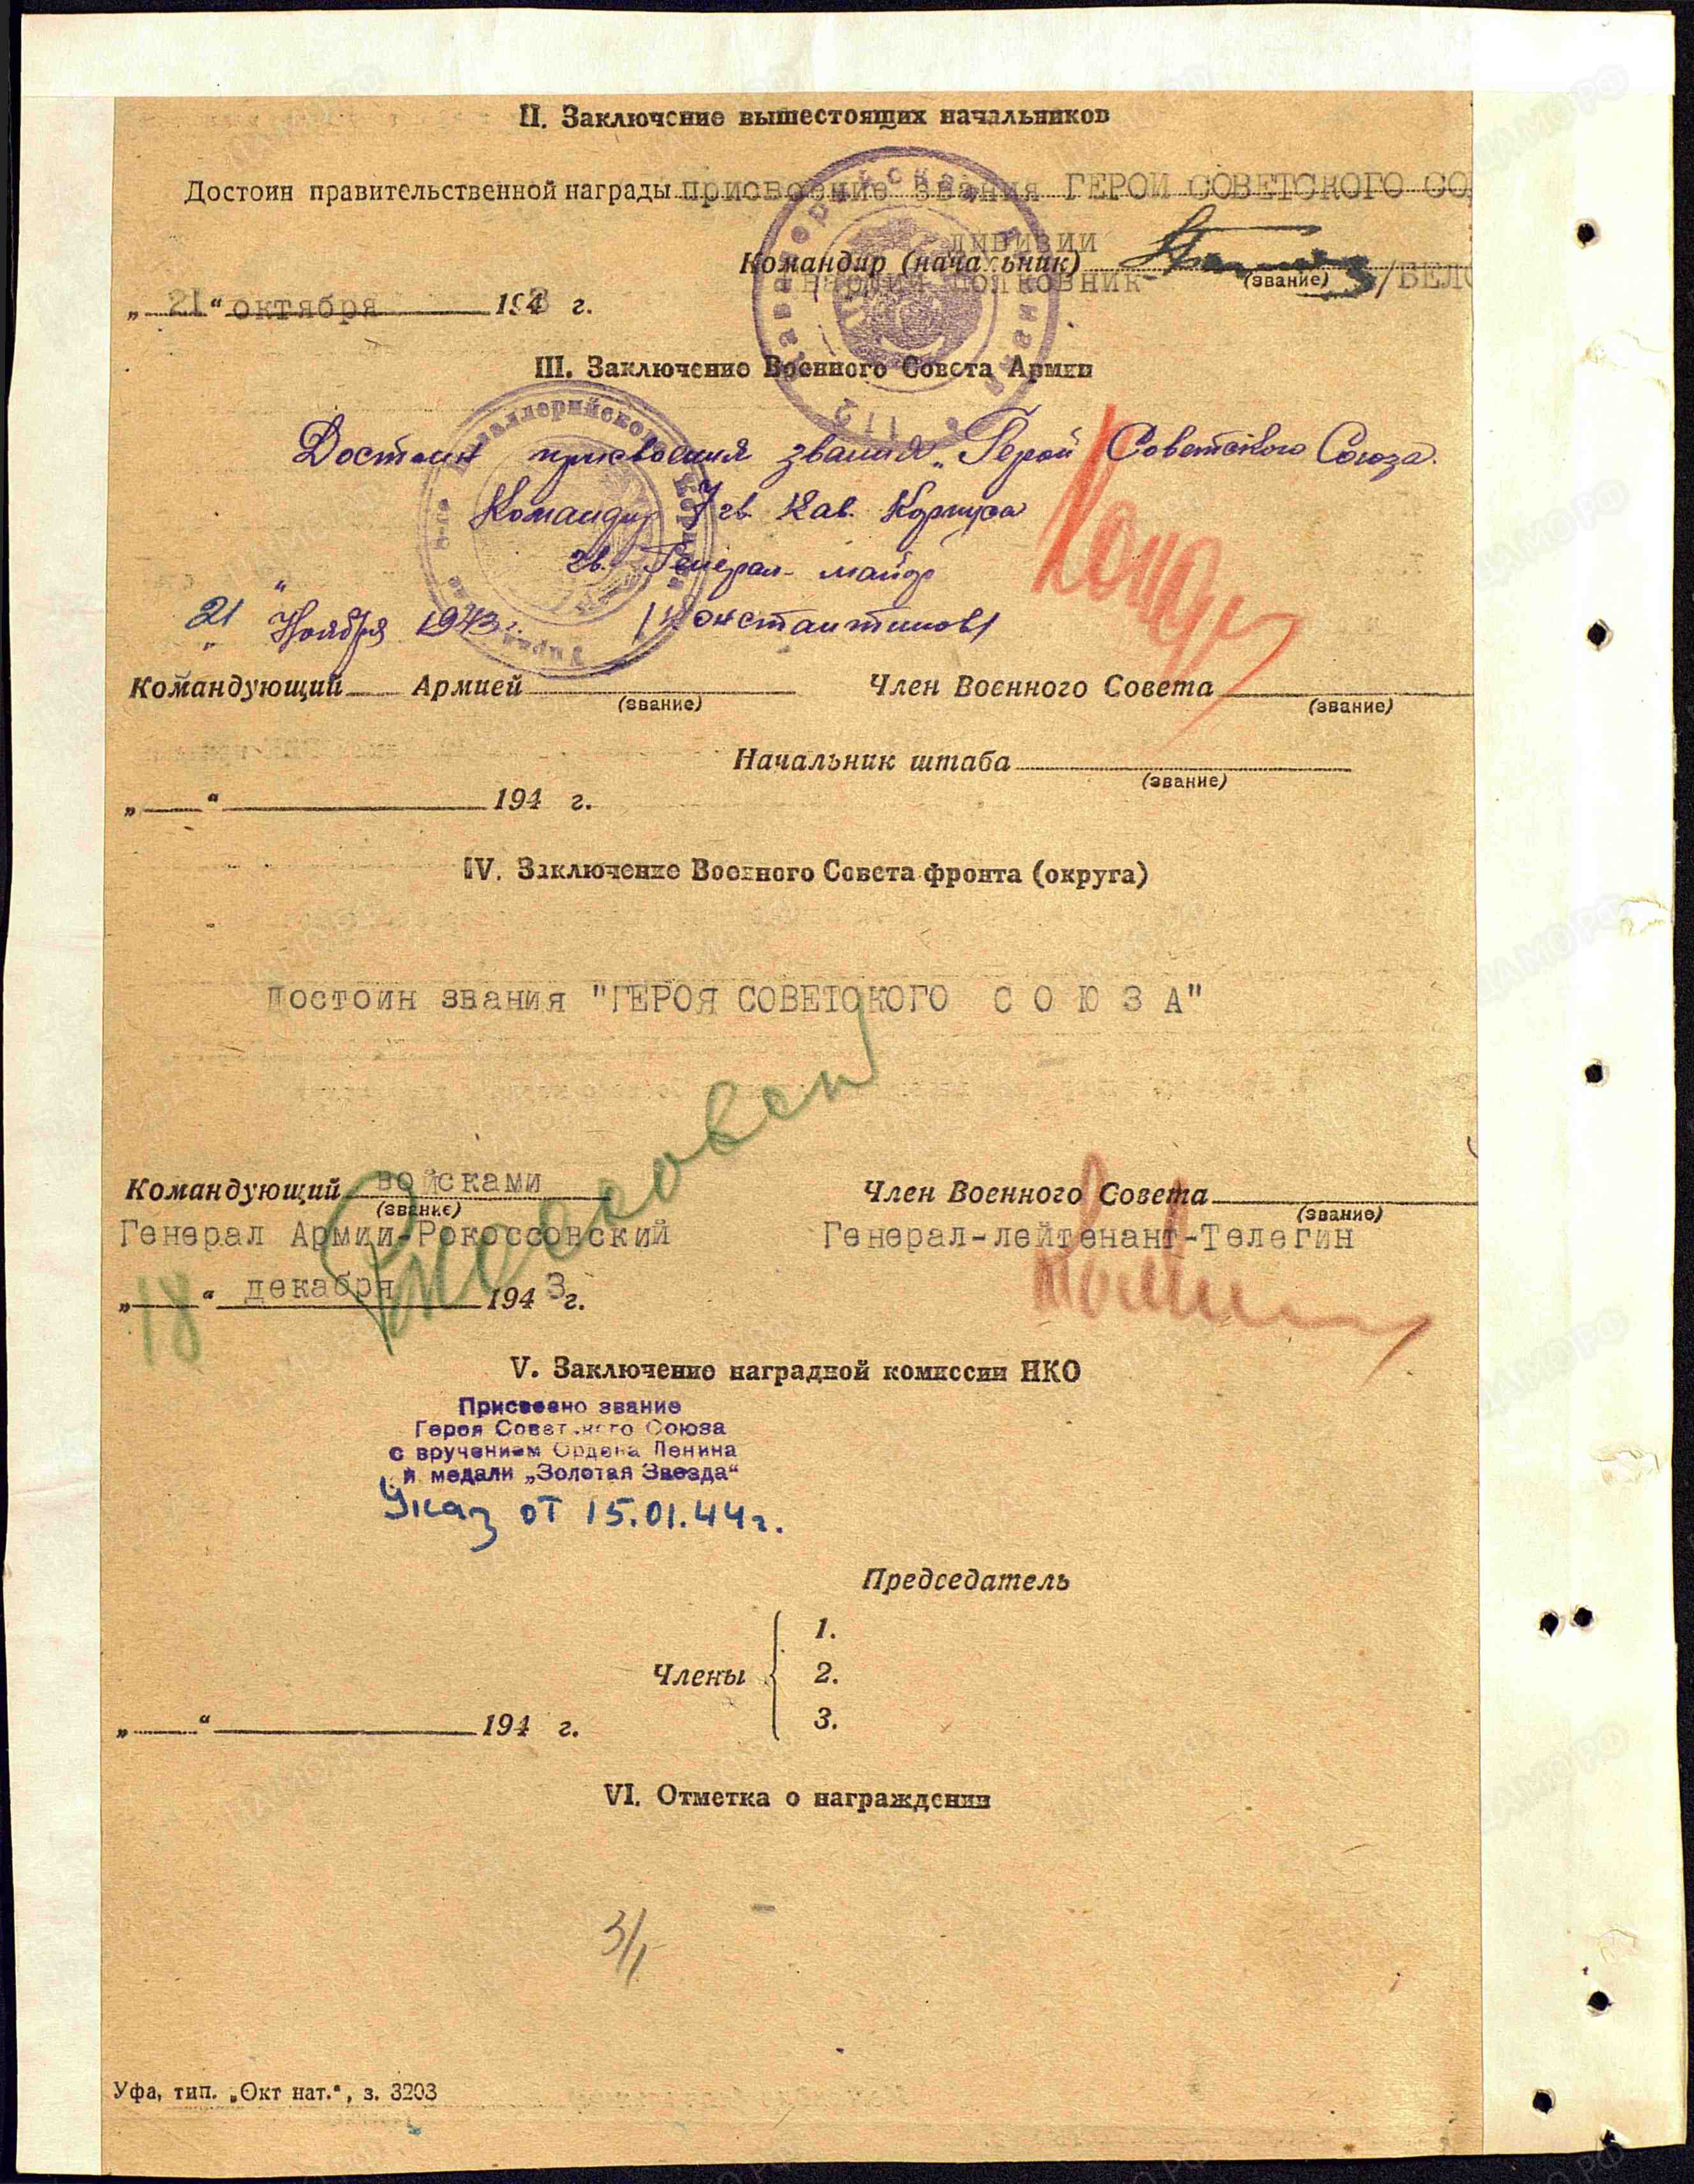 II. Заключение вышестоящих начальников
Достоин правительственной награды присвоение звания ГЕРОЙ СОВЕТСКОГО СО
дивизии
Командир (начальник)
гвардии полковник- (звание) /БЕЛО
„ 21 “ октября 1943 г.
III. Заключение Военного Совета Армии
Достоин присвоения звания „Герой Советского Союза.
Командир 7 гв. Кав. Корпуса
гв. Генерал-майор
„ 21 “ Ноября 1943 г. /Константинов/
Командующий Армией (звание) Член Военного Совета (звание)
Начальник штаба (звание)
„ “ 194 г.
IV. Заключение Военного Совета фронта (округа)
Достоин звания "ГЕРОЯ СОВЕТСКОГО С О Ю З А"
Командующий войсками (звание) Член Военного Совета (звание)
Генерал Армии-Рокоссовский Генерал-лейтенант-Телегин
„ 18 “ декабря 1943 г.
V. Заключение наградной комиссии НКО
Присвоено звание
Героя Советского Союза
с вручением Ордена Ленина
и медали „Золотая Звезда“
Указ от 15.01.44г.
Председатель
1.
Члены 2.
3.
„ “ 194 г.
VI. Отметка о награждении
3/I
Уфа, тип. „Окт нат.“, з. 3203